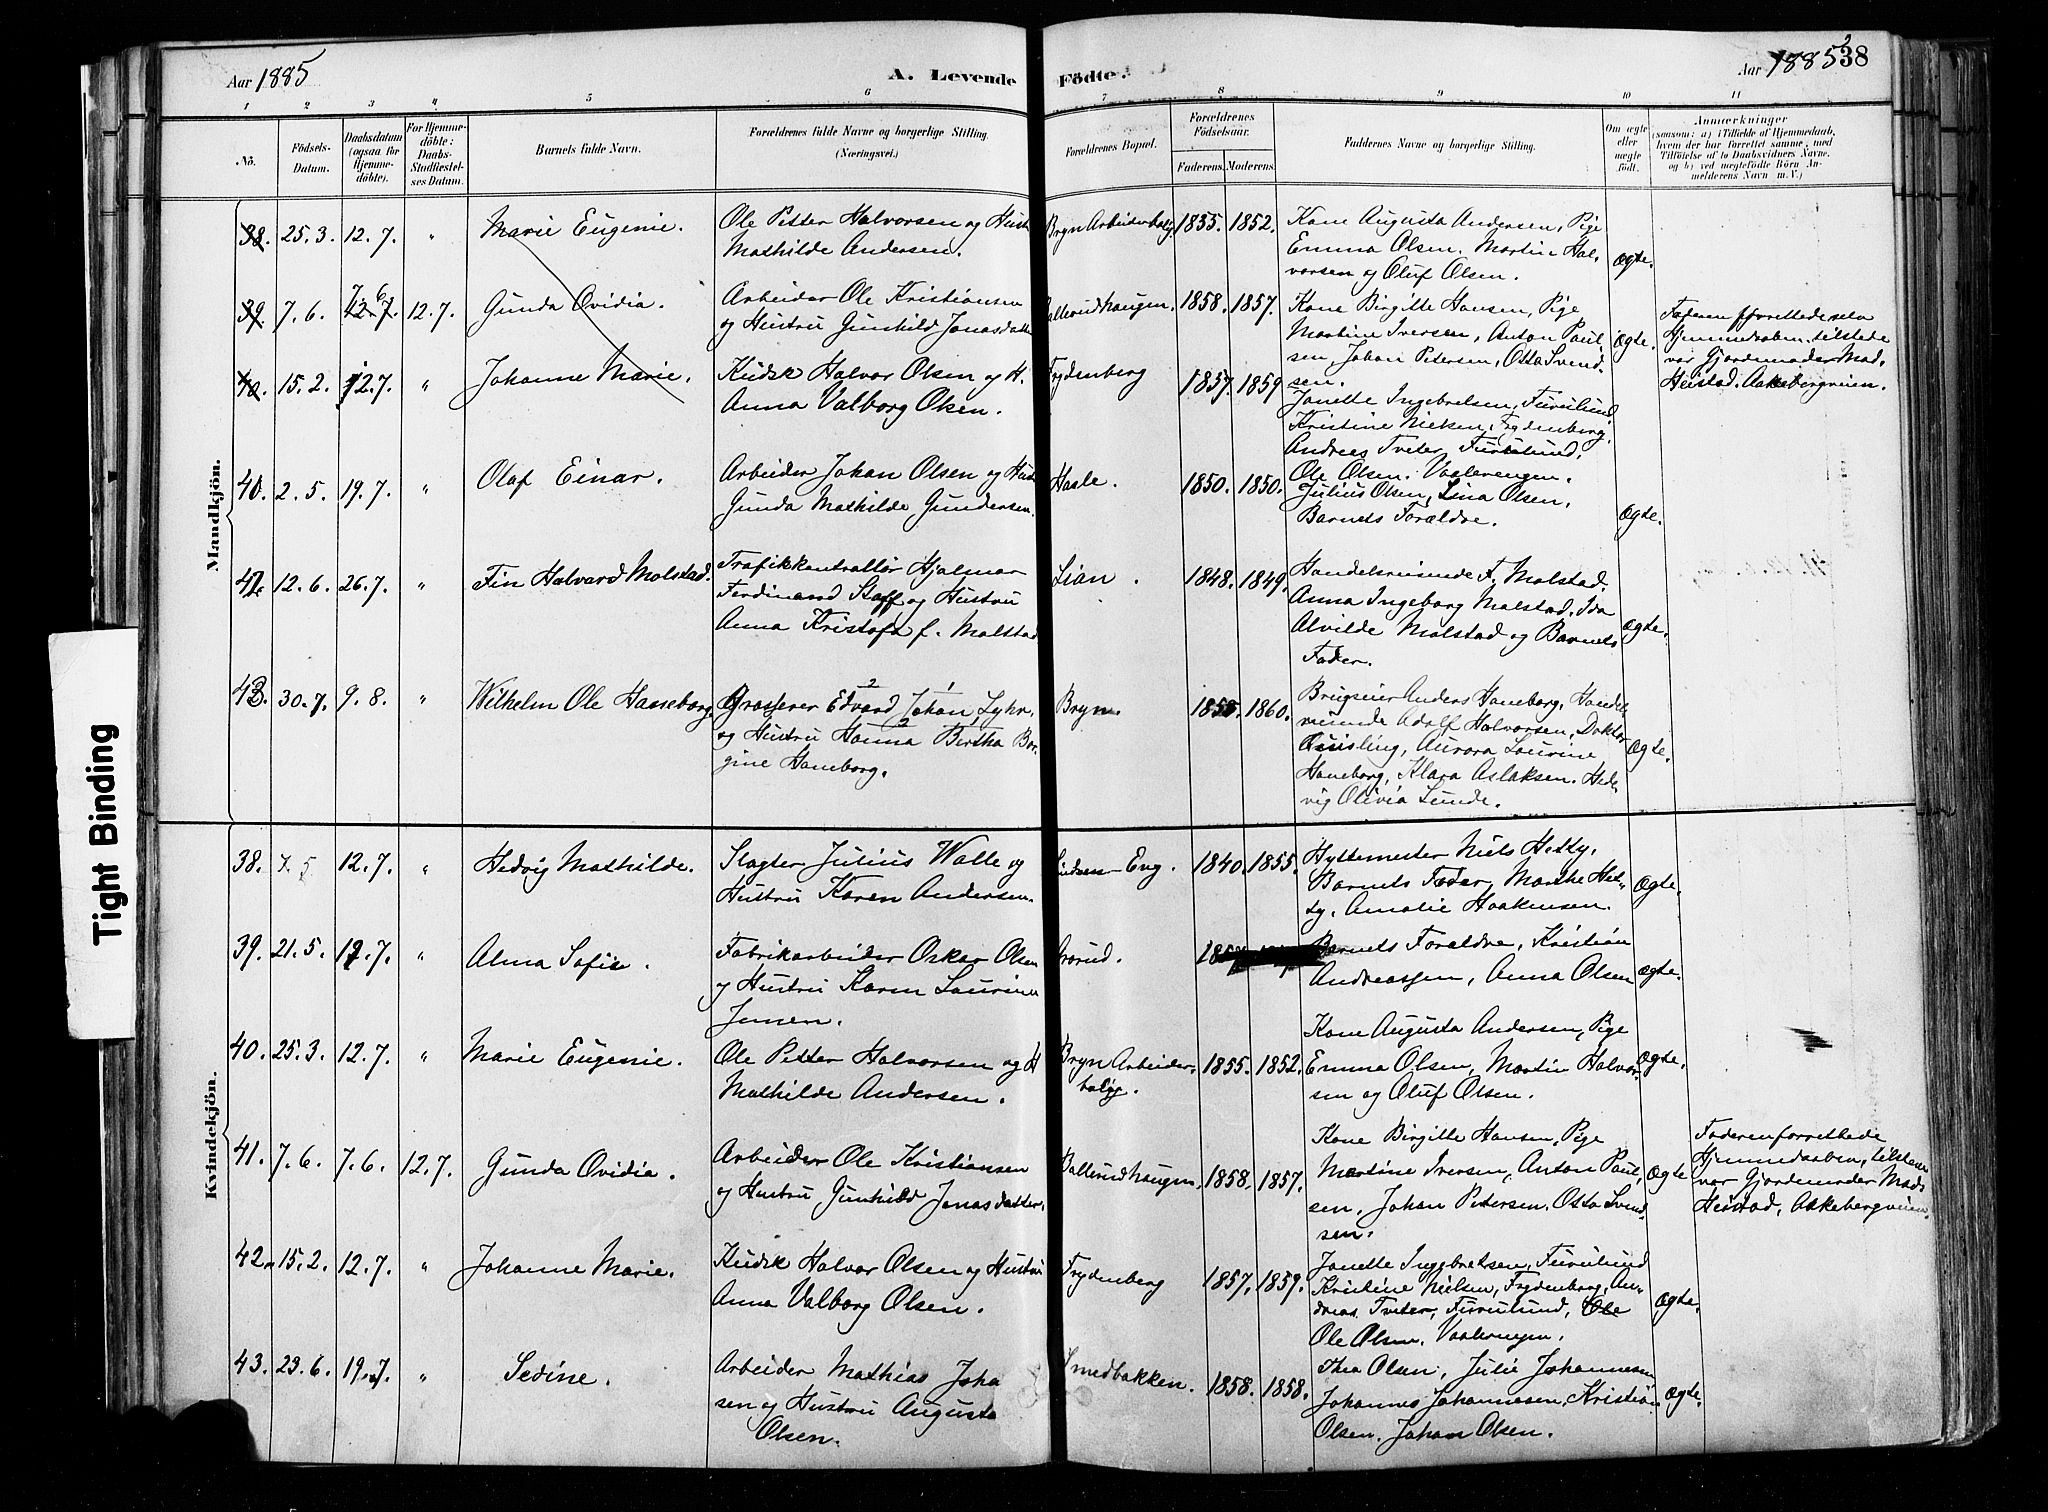 Aar 1885
A. Levende
Födte.
Aar 1885
38
1 2 3 4 5 6 7 8 9 10 11
Nô.
Födsels-
Datum.
Daabsdatum
(ogsaa för
Hjemme-
döbte).
For Hjemme-
döbte:
Daabs-
Stadfæstel-
ses Datum.
Barnets fulde Navn.
Forældrenes fulde Navne og borgerlige Stilling.
(Næringsvei.)
Forældrenes Bopæl.
Forældrenes
Födselsaar.
Faderens. Moderens.
Faddernes Navne og borgerlige Stilling.
Om ægte
eller
uægte
födt.
Anmærkninger
(saasom: a) i Tilfælde af Hjemmedaab,
hvem der har forrettet samme, med
Tilföielse af to Daabsvidners Navne.
og b) ved uægtefödte Börn An-
melderens Navn m. V.)
Mandkjön.
38. 25.3. 12.7. " Marie Eugenie.
Ole Petter Halvorsen og Hust
Mathilde Andersen.
Bryn Arbeiderbolig. 1855. 1852.
Kone Augusta Andersen, Pige
Emma Olsen. Martin Hal-
vorsen og Oluf Olsen.
Ægte.
39. 7.6. 12.7. 12.7. Gunda Ovidia.
Arbeider Ole Kristiansen
og Hustru Gunhild Jonasdatte
Ballerudhaugen. 1858. 1857.
Kone Birgitte Hansen, Pige
Martine Iversen, Anton Paul-
sen, Johan Petersen, Otto Svend-
sen.
Ægte.
Faderen forrettede selv
Hjemmedaaben, tilstede
var Gjordemoder Mad.
Heistad, Aakebergveien.
40. 15.2. 12.7. " Johanne Marie.
Kudsk Halvor Olsen og H.
Anna Valborg Olsen.
Frydenberg 1857. 1859
Janette Ingebretsen, Furulund,
Kristine Nielsen, Frydenberg,
Andreas Tveter, Furulund,
Ole Olsen. Vaalerengen.
40. 2.5. 19.7. " Olaf Einar.
Arbeider Johan Olsen og Hust
Gunda Mathilde Gundersen.
Hasle. 1850. 1850.
Julius Olsen, Lina Olsen,
Barnets Forældre.
Ægte.
12.6. 26.7. " Fin Halvard Malstad.
Trafikkontrollør Hjalmar
Ferdinand Staff og Hustru
Anna Kristofa f. Malstad
Lian. 1848. 1849.
Handelsreisende F. Malstad.
Anna Ingeborg Malstad, Ida
Alvilde Malstad og Barnets
Fader.
Ægte.
30.7. 9.8. " Wilhelm Ole Haneborg.
Grosserer Edvard Johan Lyhr,
og Hustru Hanna Bertha Bor-
gine Haneborg.
Bryn. 1855. 1860.
Brugseier Anders Haneborg, Handels-
reisende Adolf Halvorsen, Doktor
Quisling, Aurora Laurine
Haneborg, Klara Aslaksen. Hed-
vig Olivia Lunde.
Ægte.
Kvindekjön.
38. 7.5 12.7. " Hedvig Mathilde.
Slagter Julius Walle og
Hustru Karen Andersen.
Eng. 1840. 1855.
Hyttemester Niels Hetty,
Barnets Fader, Marthe Het-
ty, Amalie Haakensen.
Ægte.
39. 21.5. 7. " Alma Sofie.
Fabrikarbeider Oskar Olsen
og Hustru Karen Laurine
Jensen.
Grorud.
Barnets Forældre, Kristian
Andreassen, Anna Olsen
Ægte.
40. 25.3. 12.7. " Marie Eugenie.
Ole Petter Halvorsen og H
Mathilde Andersen.
Bryn Arbeider-
bolig. 1855. 1852.
Kone Augusta Andersen, Pige
Emma Olsen, Martin Halvor-
sen og Oluf Olsen.
Ægte.
41. 7.6. 7.6. 12.7. Gunda Ovidia.
Arbeider Ole Kristiansen
og Hustru Gunhild Jonasdatter.
Ballerudhaugen. 1858. 1857.
Kone Birgitte Hansen, Pige
Martine Iversen, Anton Paul-
sen, Johan Petersen, Otto Svend-
sen.
Ægte
Faderen forrettede
Hjemmedaaben, tilstede
var Gjordemoder Mad.
Heistad, Aakebergveien.
42. 15.2. 12.7. " Johanne Marie.
Kudsk Halvor Olsen og Hustru
Anna Valborg Olsen.
Frydenberg 1857. 1859.
Janette Ingebretsen, Furulund
Kristine Nielsen, Frydenberg, An-
dreas Tveter, Furulund, Ole
Ole Olsen. Vaalerengen.
Ægte.
43. 23.6. 19.7. " Sedine.
Arbeider Mathias Joha
sen og Hustru Augusta
Olsen.
Smedbakken. 1858. 1858.
Thea Olsen, Julie Johannesen
Johannes Johannesen, Kristian
Olsen. Johan Olsen.
Ægte.
Tight Binding